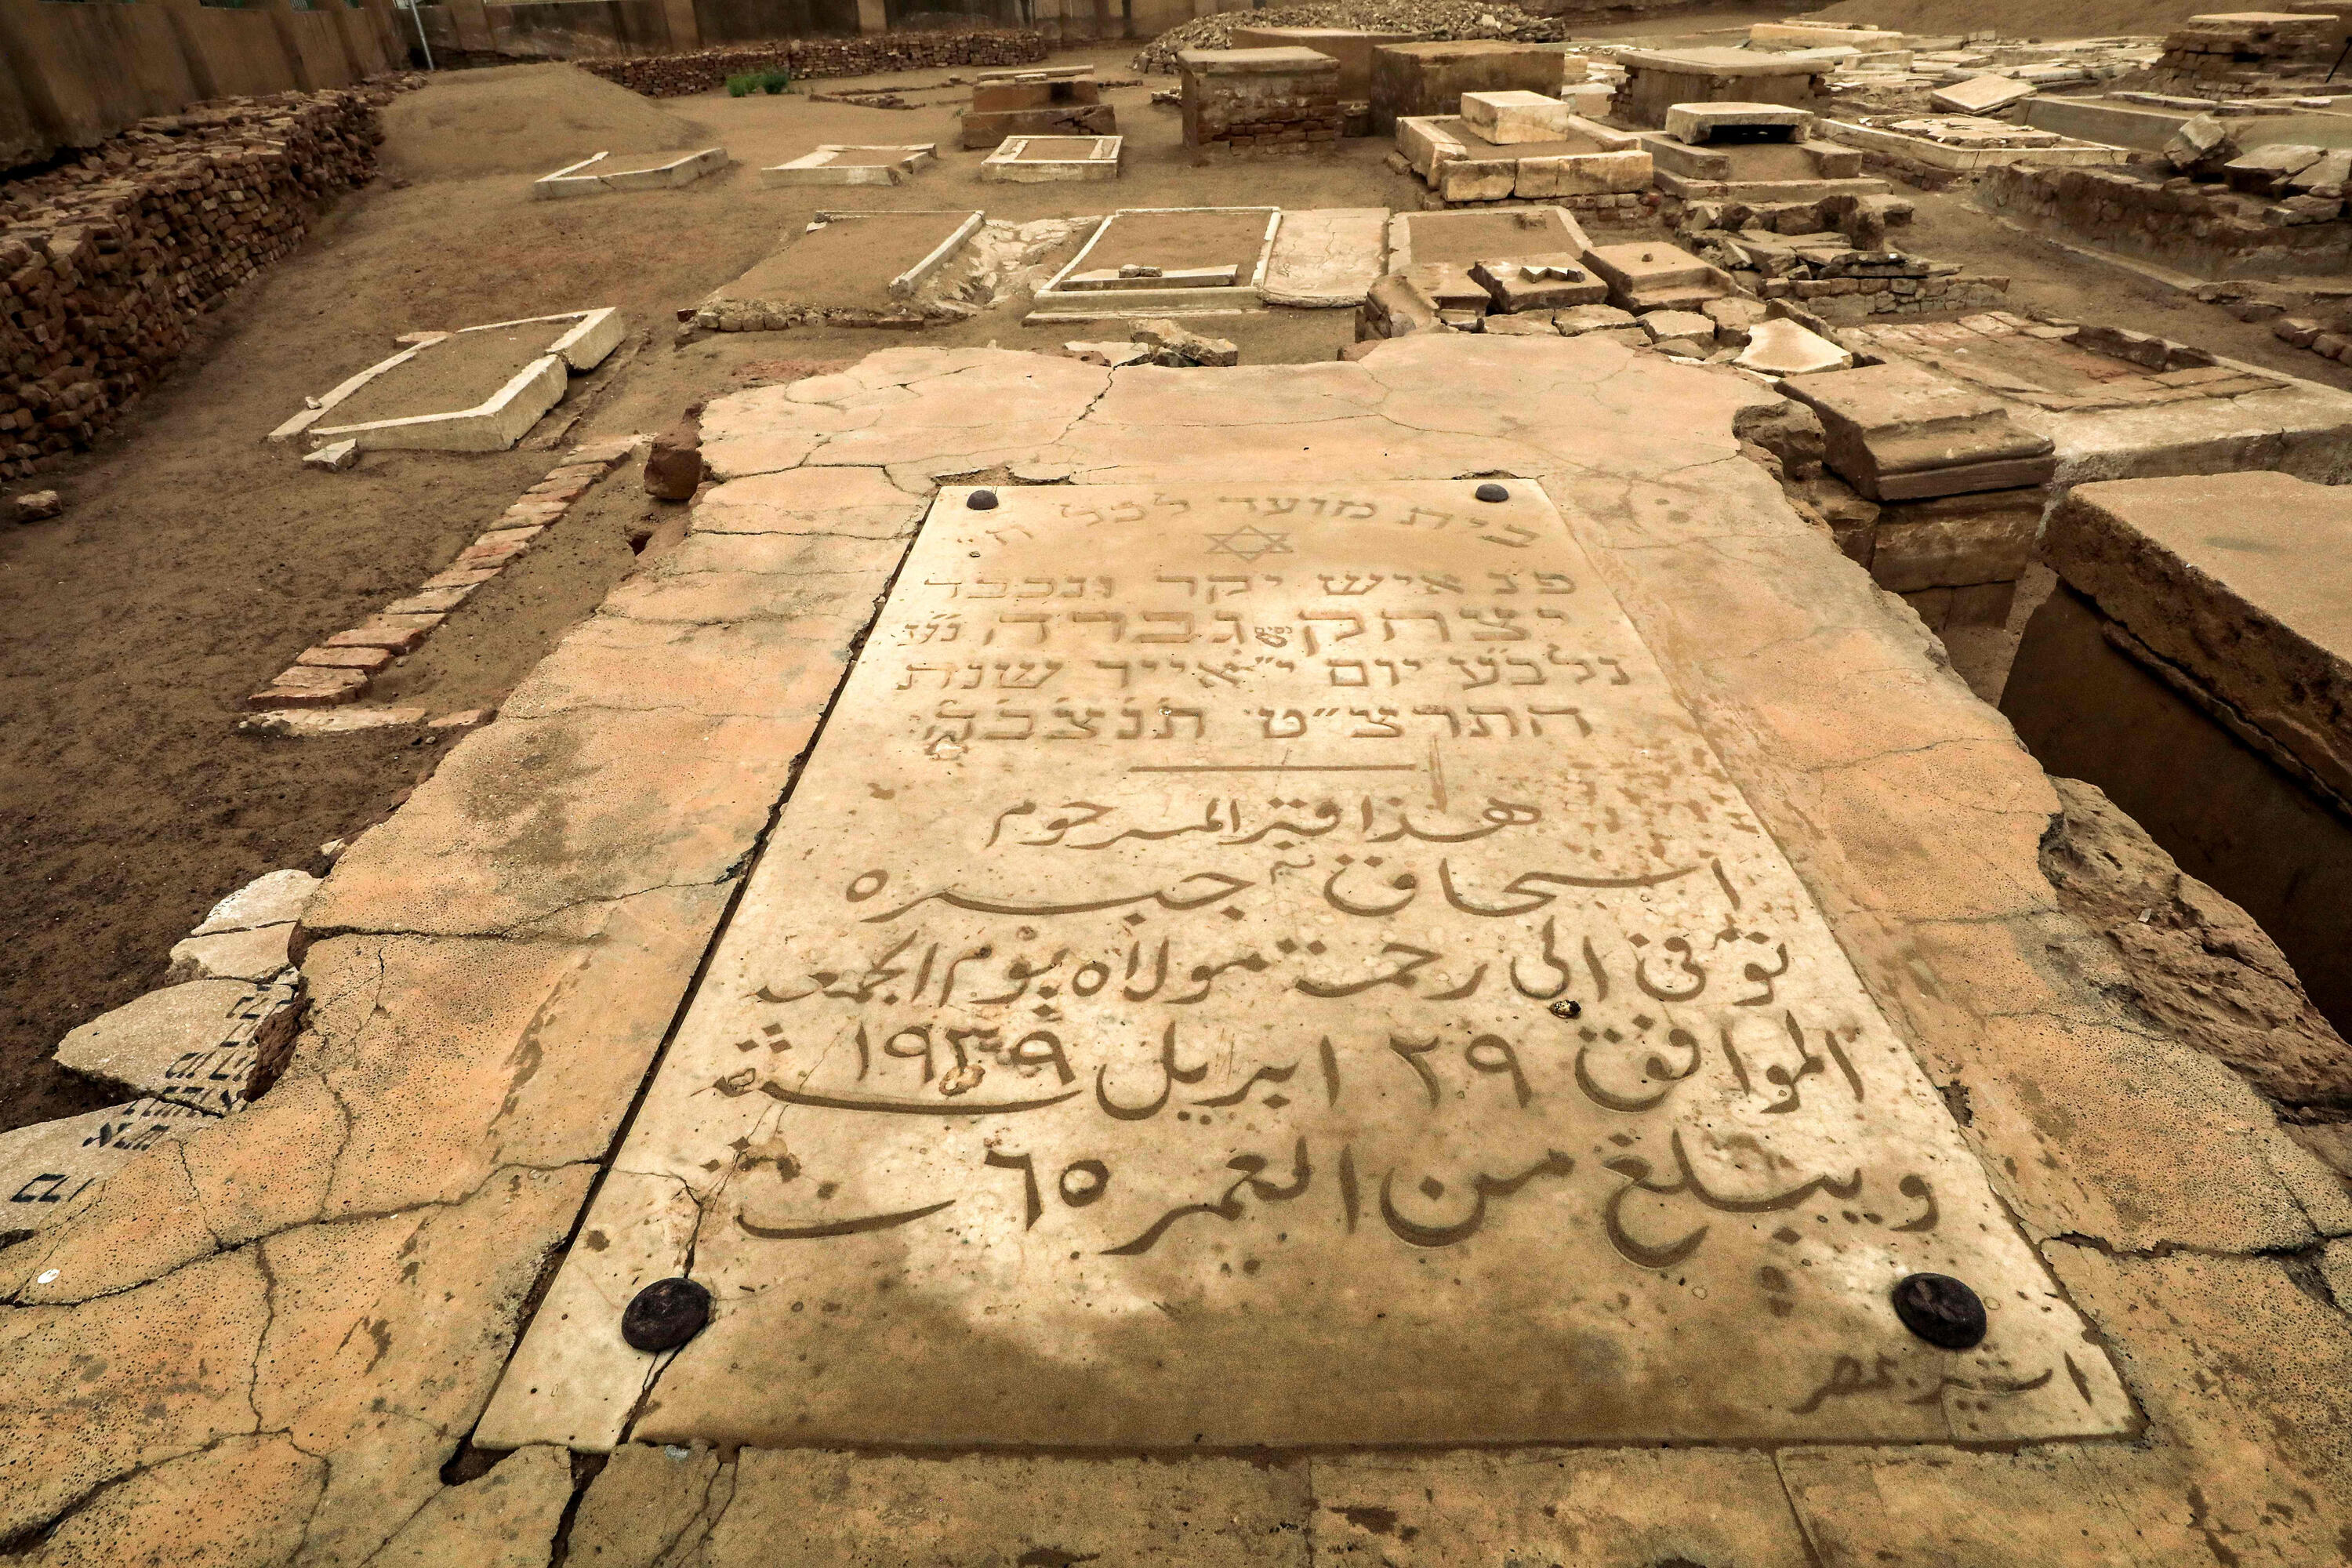 בית מועד לכל ח"
פנ איש יקר ונכבד
יצחק גברה נ"ע
נלב"ע יום י"אייר שנת
התרצ"ט תנצבה
هذا قبر المرحوم
اسحاق جبره
توفى الى رحمة مولاه يوم الجمعه
الموافق ٢٩ ابريل ١٩٣٩
ويبلغ من العمر ٦٥